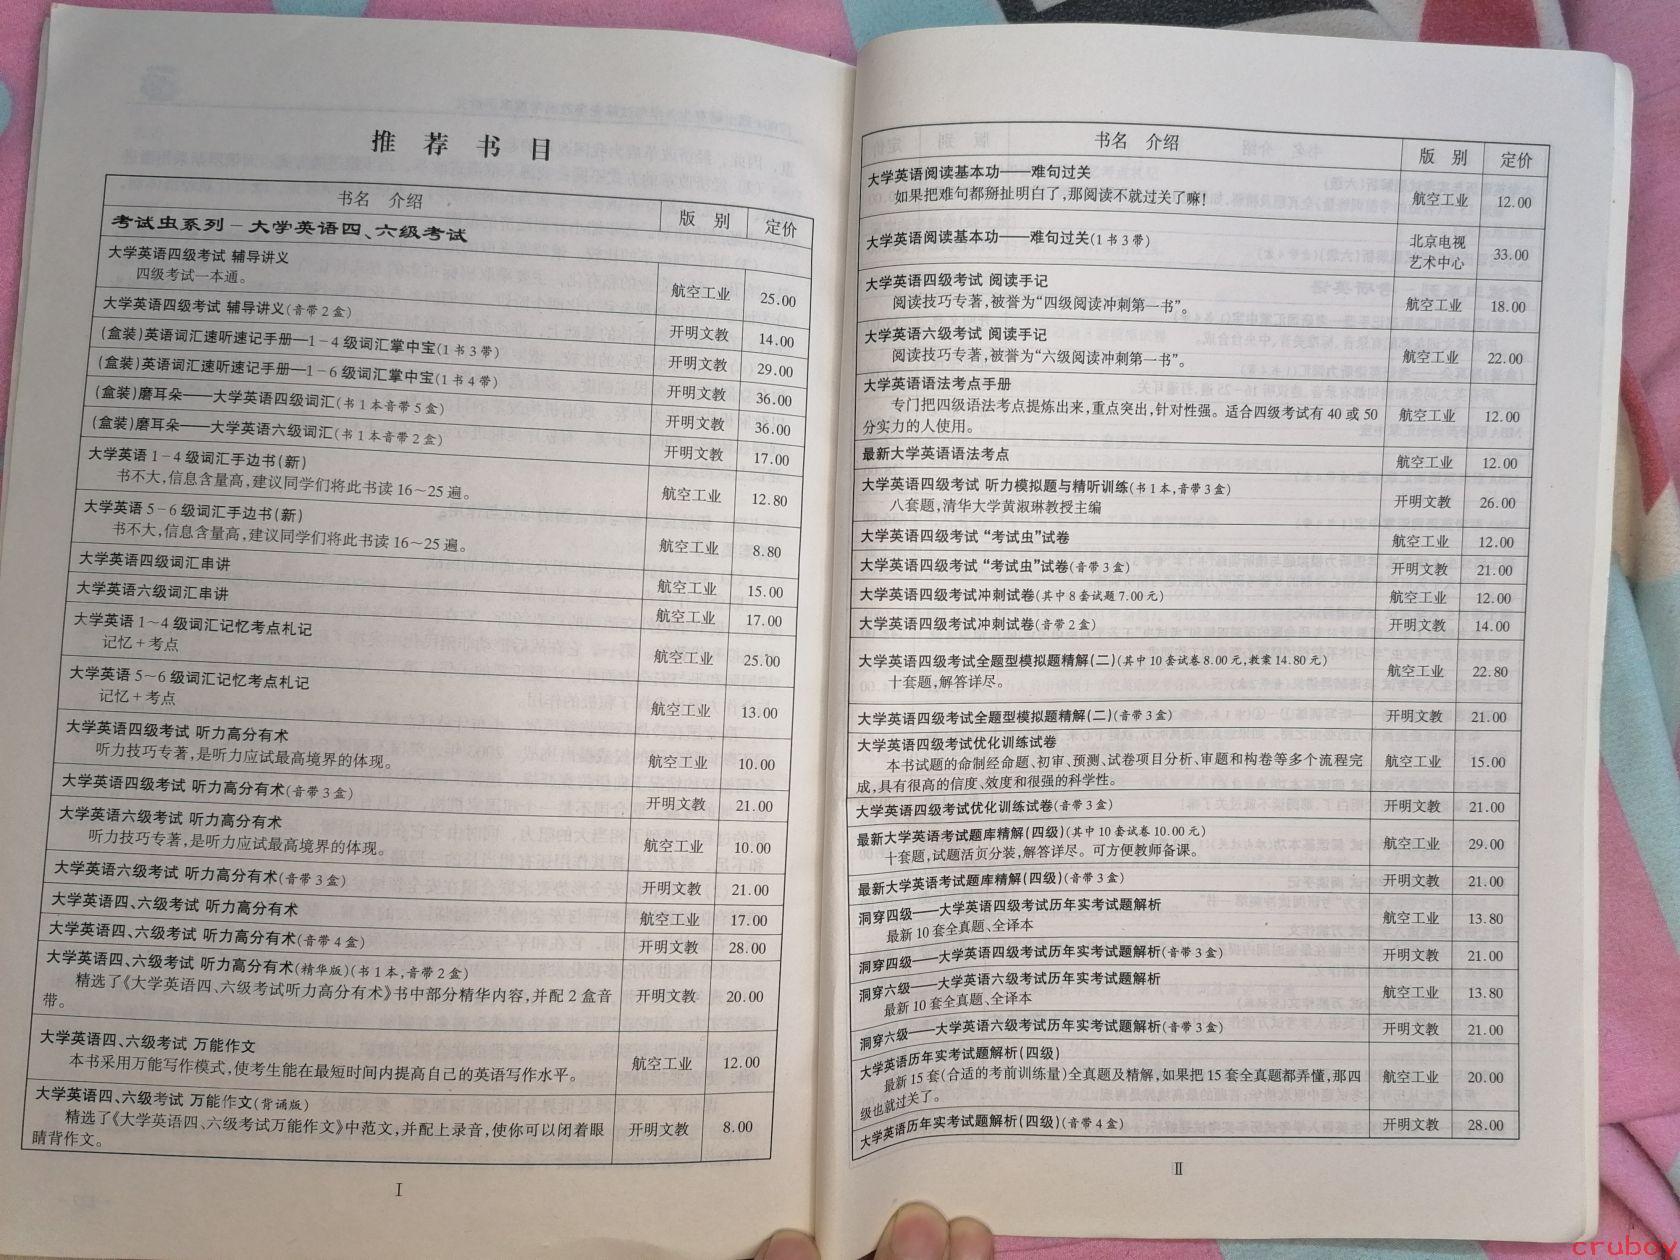 推荐书目
书名 介绍 版别 定价
考试虫系列－大学英语四、六级考试
大学英语四级考试 辅导讲义
四级考试一本通。 航空工业 25.00
大学英语四级考试 辅导讲义(音带2盒) 开明文教 14.00
(盒装)英语词汇速听速记手册—1－4级词汇掌中宝(1书3带) 开明文教 29.00
(盒装)英语词汇速听速记手册—1－6级词汇掌中宝(1书4带) 开明文教 36.00
(盒装)磨耳朵——大学英语四级词汇(书1本音带5盒) 开明文教 36.00
(盒装)磨耳朵——大学英语六级词汇(书1本音带2盒) 开明文教 17.00
大学英语1－4级词汇手边书(新)
书不大,信息含量高,建议同学们将此书读16～25遍。 航空工业 12.80
大学英语5－6级词汇手边书(新)
书不大,信息含量高,建议同学们将此书读16～25遍。 航空工业 8.80
大学英语四级词汇串讲 航空工业 15.00
大学英语六级词汇串讲 航空工业 17.00
大学英语1～4级词汇记忆考点札记
记忆＋考点 航空工业 25.00
大学英语5～6级词汇记忆考点札记
记忆＋考点 航空工业 13.00
大学英语四级考试 听力高分有术
听力技巧专著,是听力应试最高境界的体现。 航空工业 10.00
大学英语四级考试 听力高分有术(音带3盒) 开明文教 21.00
大学英语六级考试 听力高分有术
听力技巧专著,是听力应试最高境界的体现。 航空工业 10.00
大学英语六级考试 听力高分有术(音带3盒) 开明文教 21.00
大学英语四、六级考试 听力高分有术 航空工业 17.00
大学英语四、六级考试 听力高分有术(音带4盒) 开明文教 28.00
大学英语四、六级考试 听力高分有术(精华版)(书1本,音带2盒)
精选了《大学英语四、六级考试听力高分有术》书中部分精华内容,并配2盒音 开明文教 20.00
带。
大学英语四、六级考试 万能作文
本书采用万能写作模式,使考生能在最短时间内提高自己的英语写作水平。 航空工业 12.00
大学英语四、六级考试 万能作文(背诵版)
精选了《大学英语四、六级考试万能作文》中范文,并配上录音,使你可以闭着眼 开明文教 8.00
睛背作文。
Ⅰ
书名 介绍 版别 定价
大学英语阅读基本功——难句过关
如果把难句都掰扯明白了,那阅读不就过关了嘛! 航空工业 12.00
大学英语阅读基本功——难句过关(1书3带) 北京电视 33.00
艺术中心
大学英语四级考试 阅读手记
阅读技巧专著,被誉为“四级阅读冲刺第一书”。 航空工业 18.00
大学英语六级考试 阅读手记
阅读技巧专著,被誉为“六级阅读冲刺第一书”。 航空工业 22.00
大学英语语法考点手册
专门把四级语法考点提炼出来,重点突出,针对性强。适合四级考试有40或50 航空工业 12.00
分实力的人使用。
最新大学英语语法考点 航空工业 12.00
大学英语四级考试 听力模拟题与精听训练(书1本,音带3盒)
八套题,清华大学黄淑琳教授主编 开明文教 26.00
大学英语四级考试“考试虫”试卷 航空工业 12.00
大学英语四级考试“考试虫”试卷(音带3盒) 开明文教 21.00
大学英语四级考试冲刺试卷(其中8套试题7.00元) 航空工业 12.00
大学英语四级考试冲刺试卷(音带2盒) 开明文教 14.00
大学英语四级考试全题型模拟题精解(二)(其中10套试卷8.00元,教案14.80元)
十套题,解答详尽。 航空工业 22.80
大学英语四级考试全题型模拟题精解(二)(音带3盒) 开明文教 21.00
大学英语四级考试优化训练试卷
本书试题的命制经命题、初审、预测、试卷项目分析、审题和构卷等多个流程完 航空工业 15.00
成,具有很高的信度、效度和很强的科学性。
大学英语四级考试优化训练试卷(音带3盒) 开明文教 21.00
最新大学英语考试题库精解(四级)(其中10套试卷10.00元)
十套题,试题活页分装,解答详尽。可方便教师备课。 航空工业 29.00
最新大学英语考试题库精解(四级)(音带3盒) 开明文教 21.00
洞穿四级——大学英语四级考试历年实考试题解析
最新10套全真题、全译本 航空工业 13.80
洞穿四级——大学英语四级考试历年实考试题解析(音带3盒) 开明文教 21.00
洞穿六级——大学英语六级考试历年实考试题解析
最新10套全真题、全译本 航空工业 13.80
洞穿六级——大学英语六级考试历年实考试题解析(音带3盒) 开明文教 21.00
大学英语历年实考试题解析(四级)
最新15套(合适的考前训练量)全真题及精解,如果把15套全真题都弄懂,那四 航空工业 20.00
级也就过关了。
大学英语历年实考试题解析(四级)(音带4盒) 开明文教 28.00
Ⅱ
cruboy